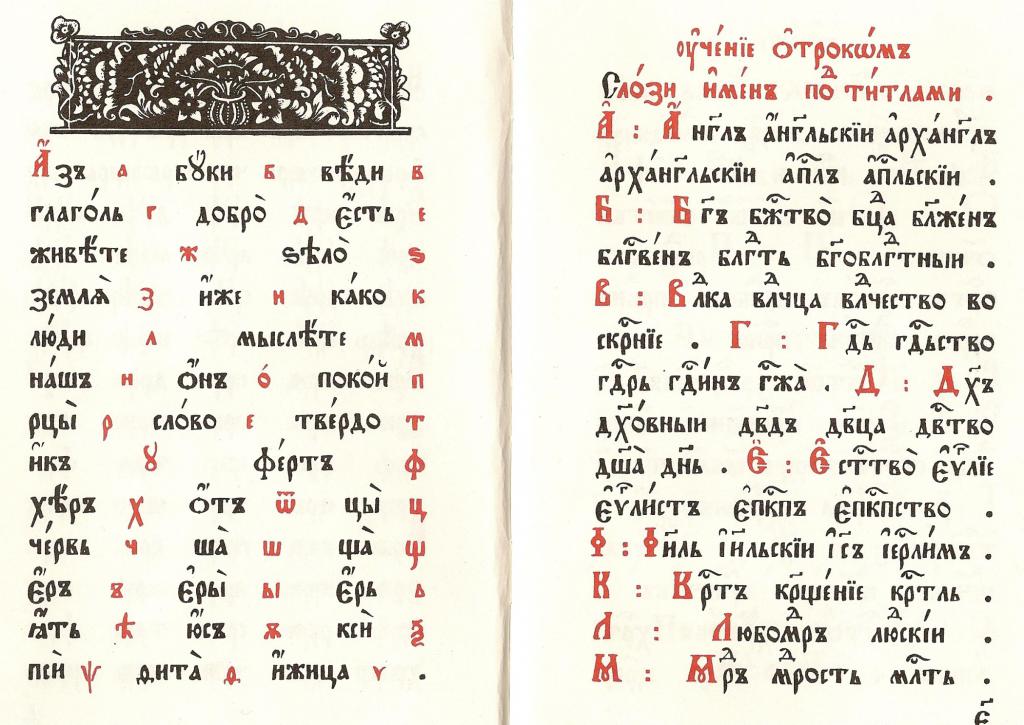 А҆́зъ а бꙋ҆́ки б вѣ҆́ди в
глаго́ль г добро̀ д є҆́сть е
живѣ́те ж ѕѣлѡ̀ ѕ
землѧ̀ з и҆́же и ка́ко к
лю́ди л мыслѣ́те м
на́шъ н о҆́нъ о́ поко́й п
рцы̀ р сло́во с тве́рдо т
и҆́къ ꙋ фе́ртъ ф
хѣ́ръ х ѿ҆́тъ ѿ цы̀ ц
че́рвь ч ша̀ ш ща̀ щ
є҆́ръ ъ є҆ры̀ ы є҆́рь ь
ꙗ҆́ть ѣ ю҆́съ ѫ ксѝ ѯ
псѝ ѱ ѳита̀ ѳ и҆́жица ѵ .
оу҆че́нїе ѻ҆трокѡ́мъ
Сло́зи и҆ме́нъ поⷣ ти́тлами .
А҆́ : А҆́нг҃лъ а҆́нг҃льскїи а҆рха́нг҃лъ
а҆рха́нг҃льскїи а҆пⷭ҇лъ а҆пⷭ҇льскїи .
Б : Бг҃ъ бжⷭ҇тво̀ бцⷣа бл҃же́нъ
блг҃ве́нъ блгⷣть бг҃облгⷣтныи .
В : Влⷣка влⷣчца влⷣчество во
скрⷭ҇нїе . Г : Гдⷭ҇ь гдⷭ҇ьство
гдⷭ҇рь гдⷭ҇и́нъ гжⷭ҇а̀ . Д : Дх҃ъ
дх҃о́вныи дв҃дъ дв҃ца двⷭ҇тво
дш҃а̀ дн҃ь . Є҆ : Є҆стⷭ҇тво̀ є҆ѵⷢ҇лїе
є҆ѵⷢ҇ли́стъ є҆пⷭ҇кпъ є҆пⷭ҇кпство .
І҆ : І҆и҃ль і҆и҃льскїи і҆с҃ъ і҆ерⷭ҇ли́мъ .
К : Крⷭ҇тъ кр҃ще́нїе крⷭ҇тль .
Л : Любомⷣръ люⷣскі́и .
М : Мⷣръ мⷣрость млⷭ҇ть .
є҃